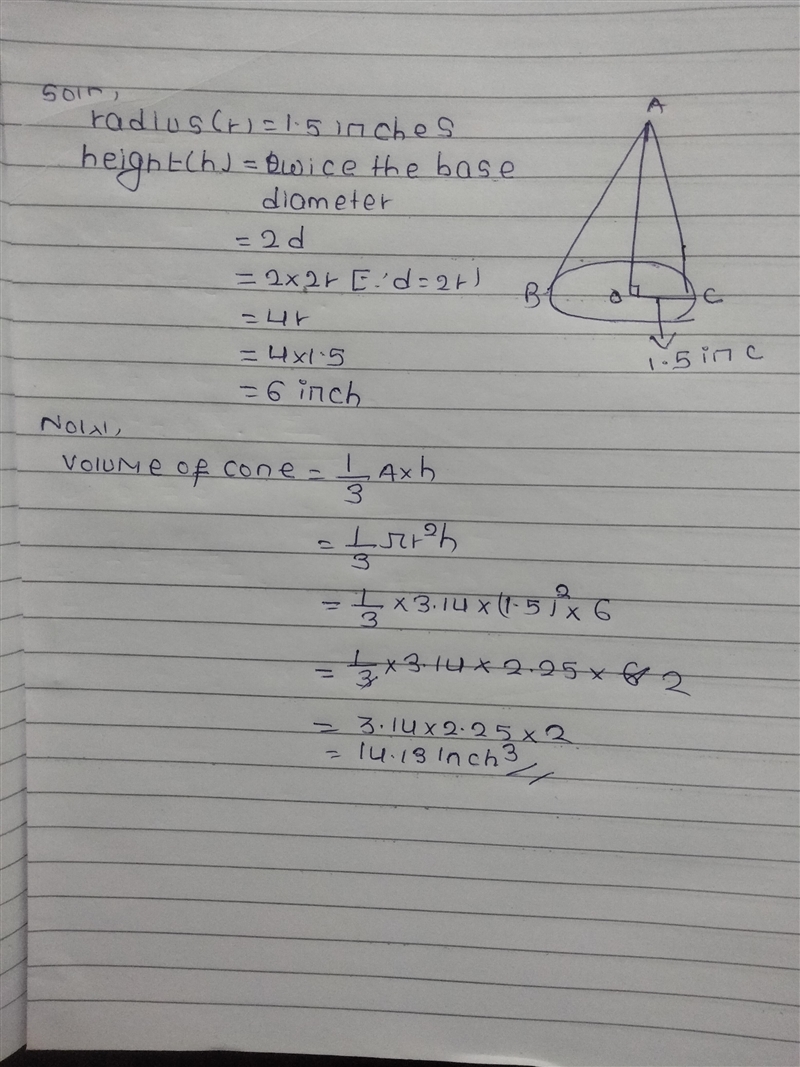 Soln,
radius(r) = 1.5 inches
height(h) = twice the base
diameter
= 2d
= 2×2r [∵ d=2r)
= 4r
= 4×1.5
= 6 inch
A
B
O
C
1.5 inc
Now,
Volume of cone = 1/3 A×h
= 1/3 πr²h
= 1/3 × 3.14 × (1.5)² × 6
= 1/3 × 3.14 × 2.25 × 6 2
= 3.14×2.25×2
= 14.13 inch³